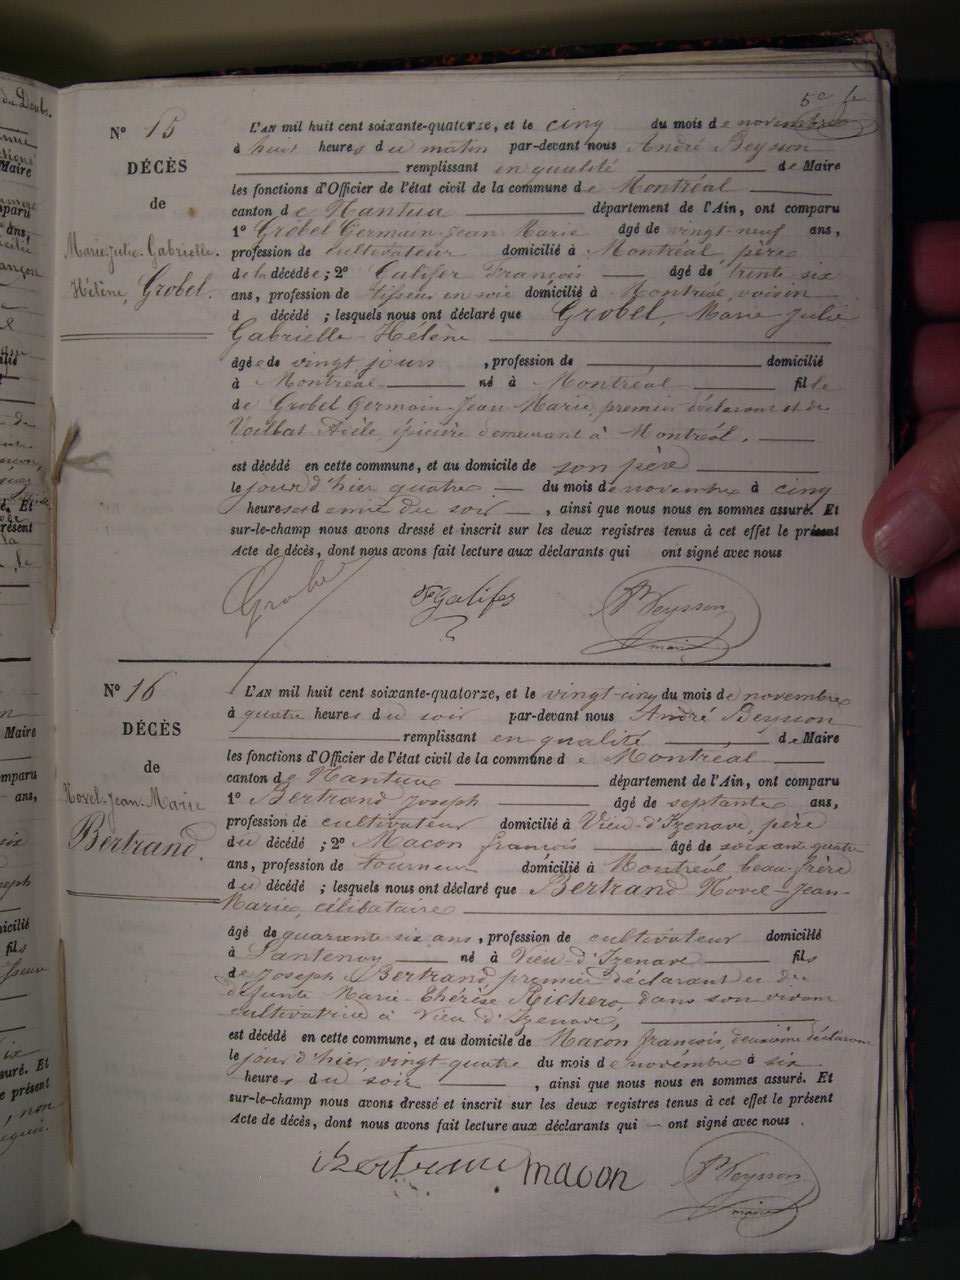 5e f.
N° 15
DÉCÈS
de
Marie-Julie-Gabrielle-
Hélène, Grobel.
L'AN mil huit cent soixante-quatorze, et le cinq du mois de novembre
à huit heures du matin par-devant nous André Beysson
remplissant en qualité de Maire
les fonctions d'Officier de l'état civil de la commune de Montréal
canton de Nantua département de l'Ain, ont comparu
1° Grobel Germain-Jean Marie âgé de vingt-neuf ans,
profession de cultivateur domicilié à Montréal, père
de la décédée ; 2° Galifer François âgé de trente six
ans, profession de tisseur en soie domicilié à Montréal, voisin
d décédé ; lesquels nous ont déclaré que Grobel, Marie Julie
Gabrielle-Hélène
âgée de vingt jours , profession de domicilié
à Montréal né à Montréal fille
de Grobel Germain-Jean Marie, premier déclarant et de
épicière demeurant à Montréal.
est décédé en cette commune, et au domicile de son père
le jour d'hier quatre du mois de novembre à cinq
heures du soir , ainsi que nous nous en sommes assuré. Et
sur-le-champ nous avons dressé et inscrit sur les deux registres tenus à cet effet le présent
Acte de décès, dont nous avons fait lecture aux déclarants qui ont signé avec nous
Grobel Galifer Beysson
maire
N° 16
DÉCÈS
de
Novel-Jean-Marie
Bertrand.
L'AN mil huit cent soixante-quatorze, et le vingt-cinq du mois de novembre
à quatre heures du soir par-devant nous André Beysson
remplissant en qualité de Maire
les fonctions d'Officier de l'état civil de la commune de Montréal
canton de Nantua département de l'Ain, ont comparu
1° Bertrand Joseph âgé de septante ans,
profession de cultivateur domicilié à Vieu-d'Izenave, père
du décédé ; 2° Macon françois âgé de soixante quatre
ans, profession de tourneur domicilié à Montréal beau-frère
du décédé ; lesquels nous ont déclaré que Bertrand Novel-Jean-
Marie, célibataire
âgé de quarante six ans, profession de cultivateur domicilié
à Lantenay né à Vieu-d'Izenave fils
de Joseph Bertrand premier déclarant et de
défunte Marie-Thérèse Richero dans son vivant
cultivatrice à Vieu d'Izenave,
est décédé en cette commune, et au domicile de Macon françois, deuxième déclarant
le jour d'hier, vingt-quatre du mois de novembre à six
heures du soir , ainsi que nous nous en sommes assuré. Et
sur-le-champ nous avons dressé et inscrit sur les deux registres tenus à cet effet le présent
Acte de décès, dont nous avons fait lecture aux déclarants qui ont signé avec nous.
Bertrand macon Beysson
maire